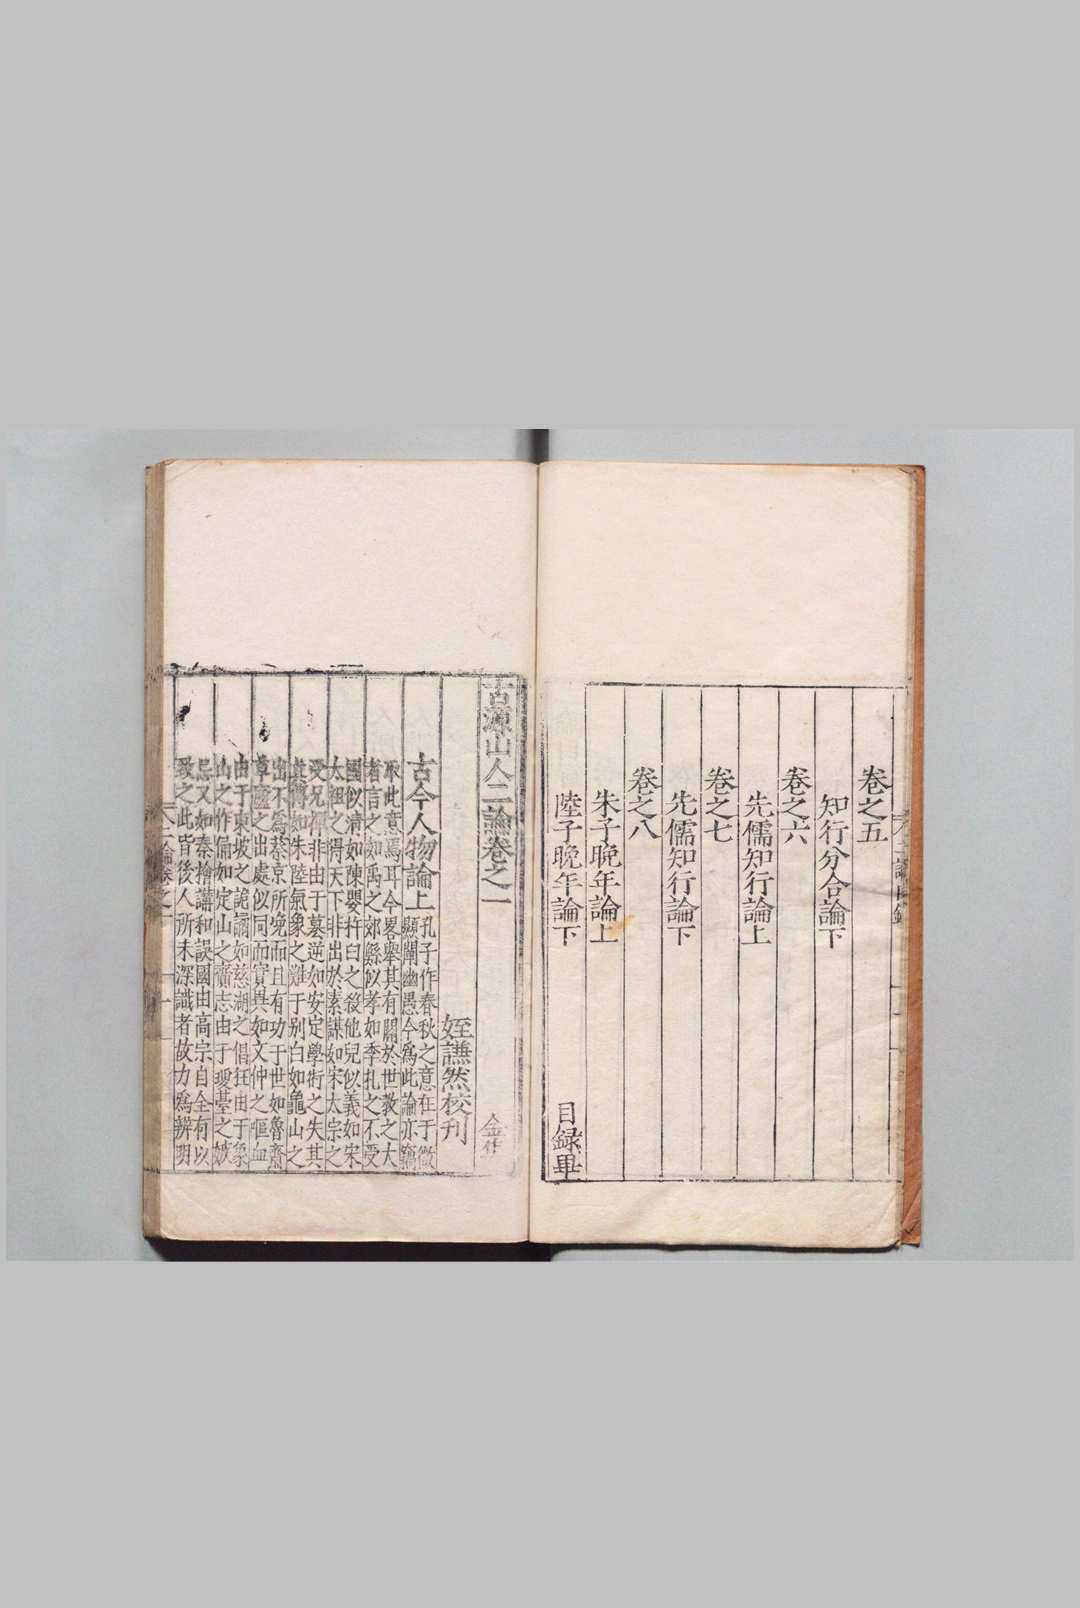 卷之五
知行分合論下
卷之六
先儒知行論上
卷之七
先儒知行論下
卷之八
朱子晚年論上
陸子晚年論下
目録畢
古源山人二論卷之一
姪謙然校刊
古今人物論上
孔子作春秋之意在于微
顯闡幽愚今爲此論亦竊
取此意焉耳今畧舉其有關於世教之大
者言之如禹之郊鯀似孝如季札之不受
國似清如陳嬰杵臼之殺他兒似義如宋
太祖之得天下非出於素謀如宋太宗之
受兄禪非由于墓逆如安定學術之失其
真傳如朱陸氣象之難于别白如龜山之
出不爲蔡京所凂而且有功于世如魯齋
草廬之出處似同而實異如文仲之
由于東坡之詭謫如慈湖之倡狂由于象
山之作偏如定山之喪志由于瓊臺之嫉
忌又如秦檜講和誤國由高宗自全有以
致之此皆後人所未深識者故力爲辨明